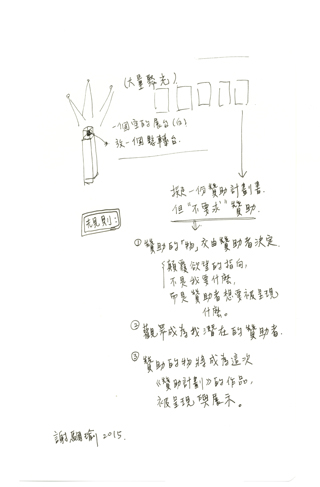 (大量聚光)
一個空的展台(位)
放一個點轉台.
擬一個贊助計劃書.
但"不要求"贊助.
規則:
①贊助的「物」交由贊助者決定.
顛覆慾望的指向,
不是我要什麼,
而是贊助者想要被呈現
什麼。
②觀眾成為我潛在的贊助者.
③贊助的物將成為這次
《贊助計劃》的作品,
被呈現與展示。
2015.